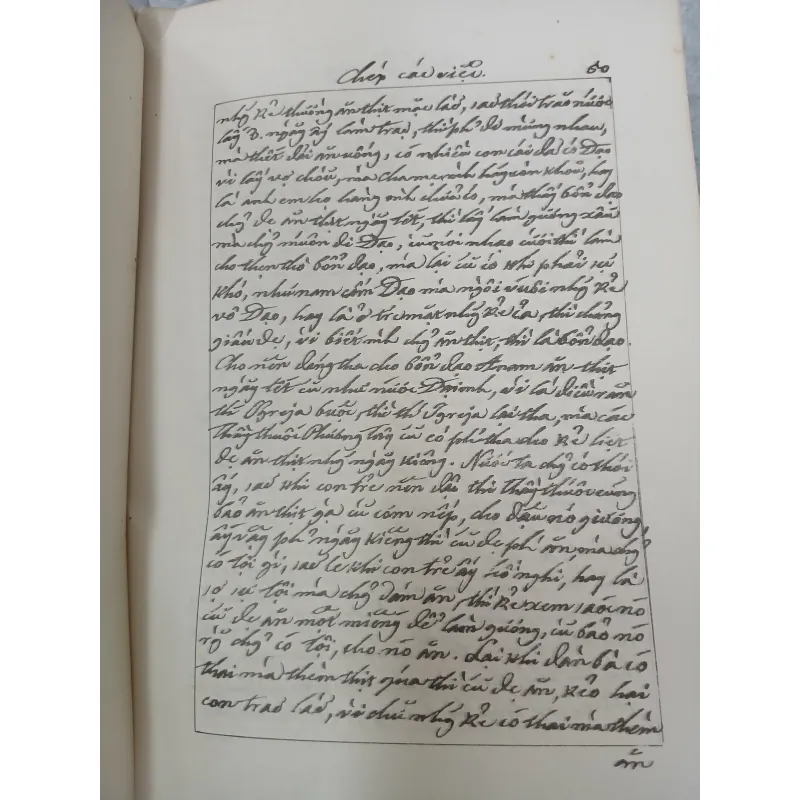 Chép các viẹc. 60
nhŋ̃ kẻ thường ăn thịt mạc lào, sao thói trão nước
lấy 3. ngày ấy làm trạ, thì phải đi mùng nhau,
mà thết đãi ăn uống, có nhiều con cái đã có Đạo
vì lấy vợ chồũ, mà cha mẹ mình hãy còn khỡũ, hay
là anh em họ hàng mình chửa có, mà thấy bổn đạo
chŋ̉ đc ăn thịt ngày tết, thì lấy làm gương xấu
mà chŋ̉ muốn đi Đạo, cũ nói nhạo cười thì làm
cho thẹn thò bổn đạo, mà lại cũ có khi phải sự
khó, như năm cấm Đạo mà ngồi cũ với nhŋ̃ kẻ
vô Đạo, hay là ở trc mặt nhŋ̃ kẻ cả, thì chảng
giấu đc, vì biết mình chŋ̉ ăn thịt, thì là bổn đạo.
Cho nên đáng tha cho bổn đạo Annam ăn thịt
ngày tết cũ như nước Đại minh, vì là điều răn
th Ygreja buộc, thì th Ygreja lại tha, mà các
Thầy thuốc Phương tây cũ có phép tha cho kẻ liẹt
đc ăn thịt nhŋ̃ ngày kiêng. Nước ta chŋ̉ có thói
ấy, sao khi con trẻ nên đậu thì thầy thuốc cũng
bảo ăn thịt gà cũ cơm nếp, cho đậu nó giương,
ấy vậy phải ngày kiêng thì cũ đc phép ăn mà chŋ̉
có tội gì, sao le khi con trẻ ấy hồ nghi, hay là
sợ sự tội mà chŋ̉ dám ăn, thì kẻ xem sóc nó
cũ đc ăn một miếng để làm gương, cũ bảo nó
rằŋ chŋ̉ có tội, cho nó ăn. Lại khi đàn bà có
thai mà thèm thịt quá thì cũ đc ăn, kẻo hại
con trao lào, vì chŋ nhŋ̃ kẻ có thai mà thèm
ăn